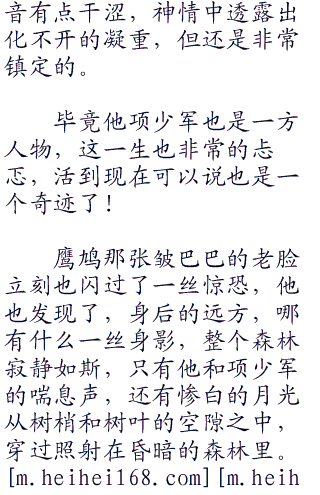 音有点干涩，神情中透露出
化不开的凝重，但还是非常
镇定的。
毕竟他项少军也是一方
人物，这一生也非常的忐
忑，活到现在可以说也是一
个奇迹了！
鹰鸠那张皱巴巴的老脸
立刻也闪过了一丝惊恐，他
也发现了，身后的远方，哪
有什么一丝身影，整个森林
寂静如斯，只有他和项少军
的喘息声，还有惨白的月光
从树梢和树叶的空隙之中，
穿过照射在昏暗的森林里。
[m.heihei168.com][m.heih